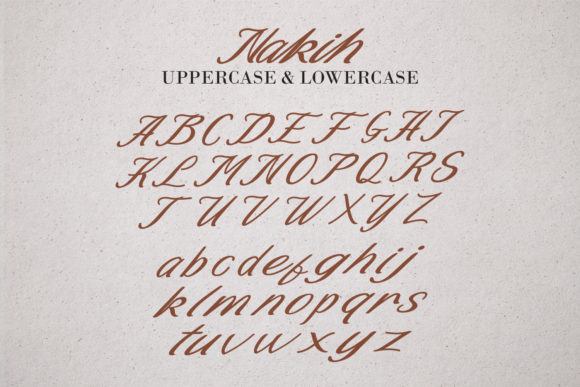 Nakih
UPPERCASE & LOWERCASE
A B C D E F G H I
K L M N O P Q R S
T U V V W X Y Z
a b c d e f g h i j
k l m n o p q r s
t u v w x y z